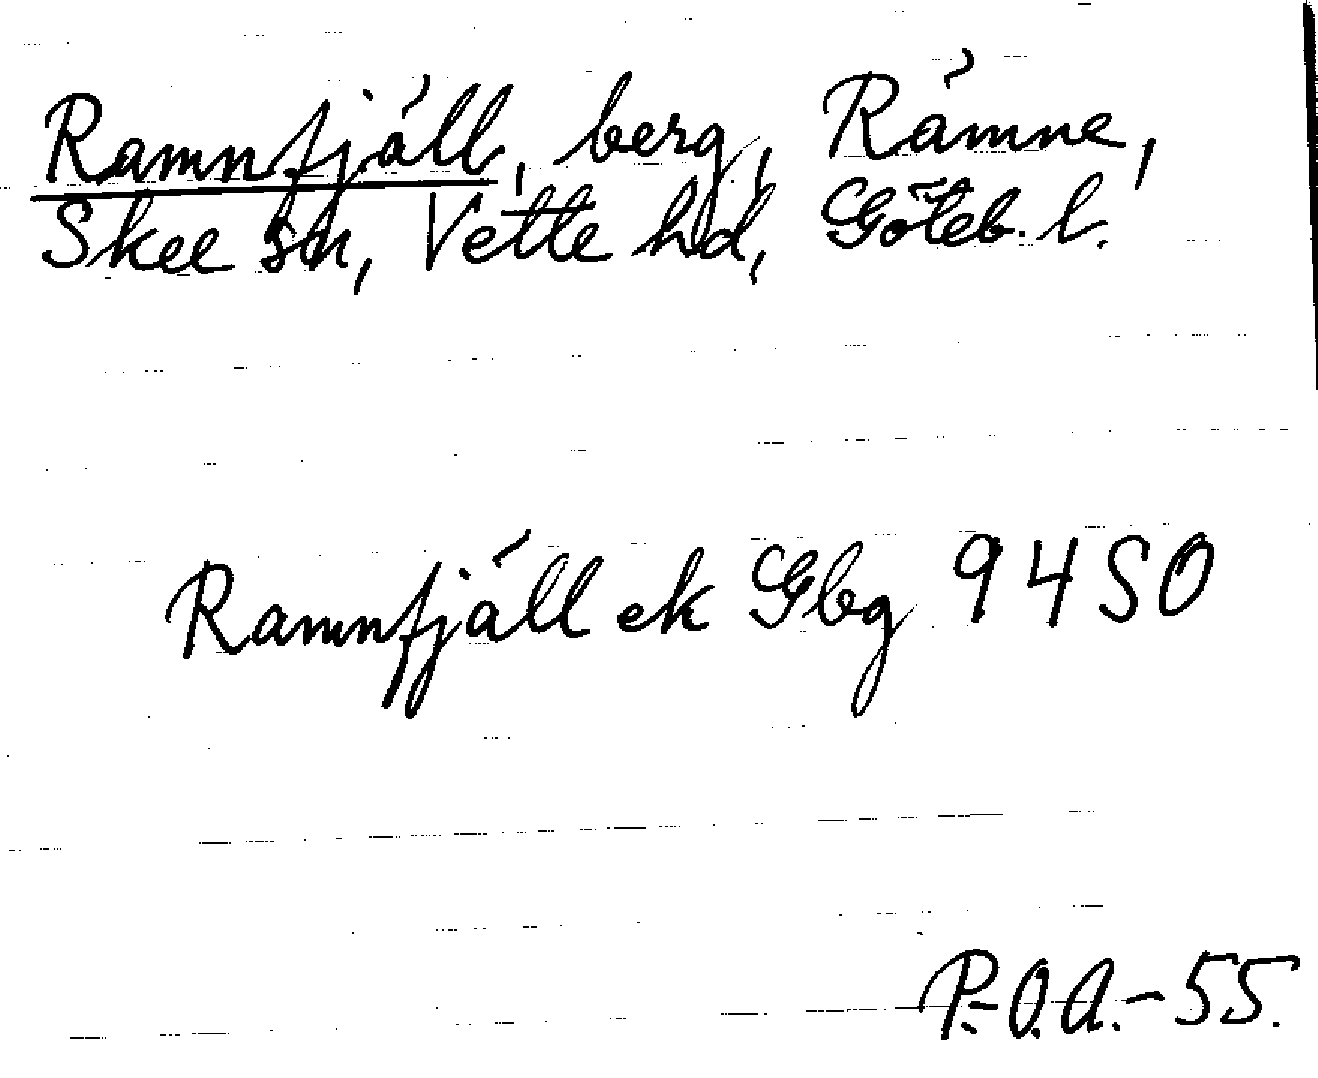 Ramnfjäll, berg, Rämne,
Skee sn, Vette hd, Göteb. l.
Ramnfjäll ek Gbg 94 SO
P.-O.A.-55.